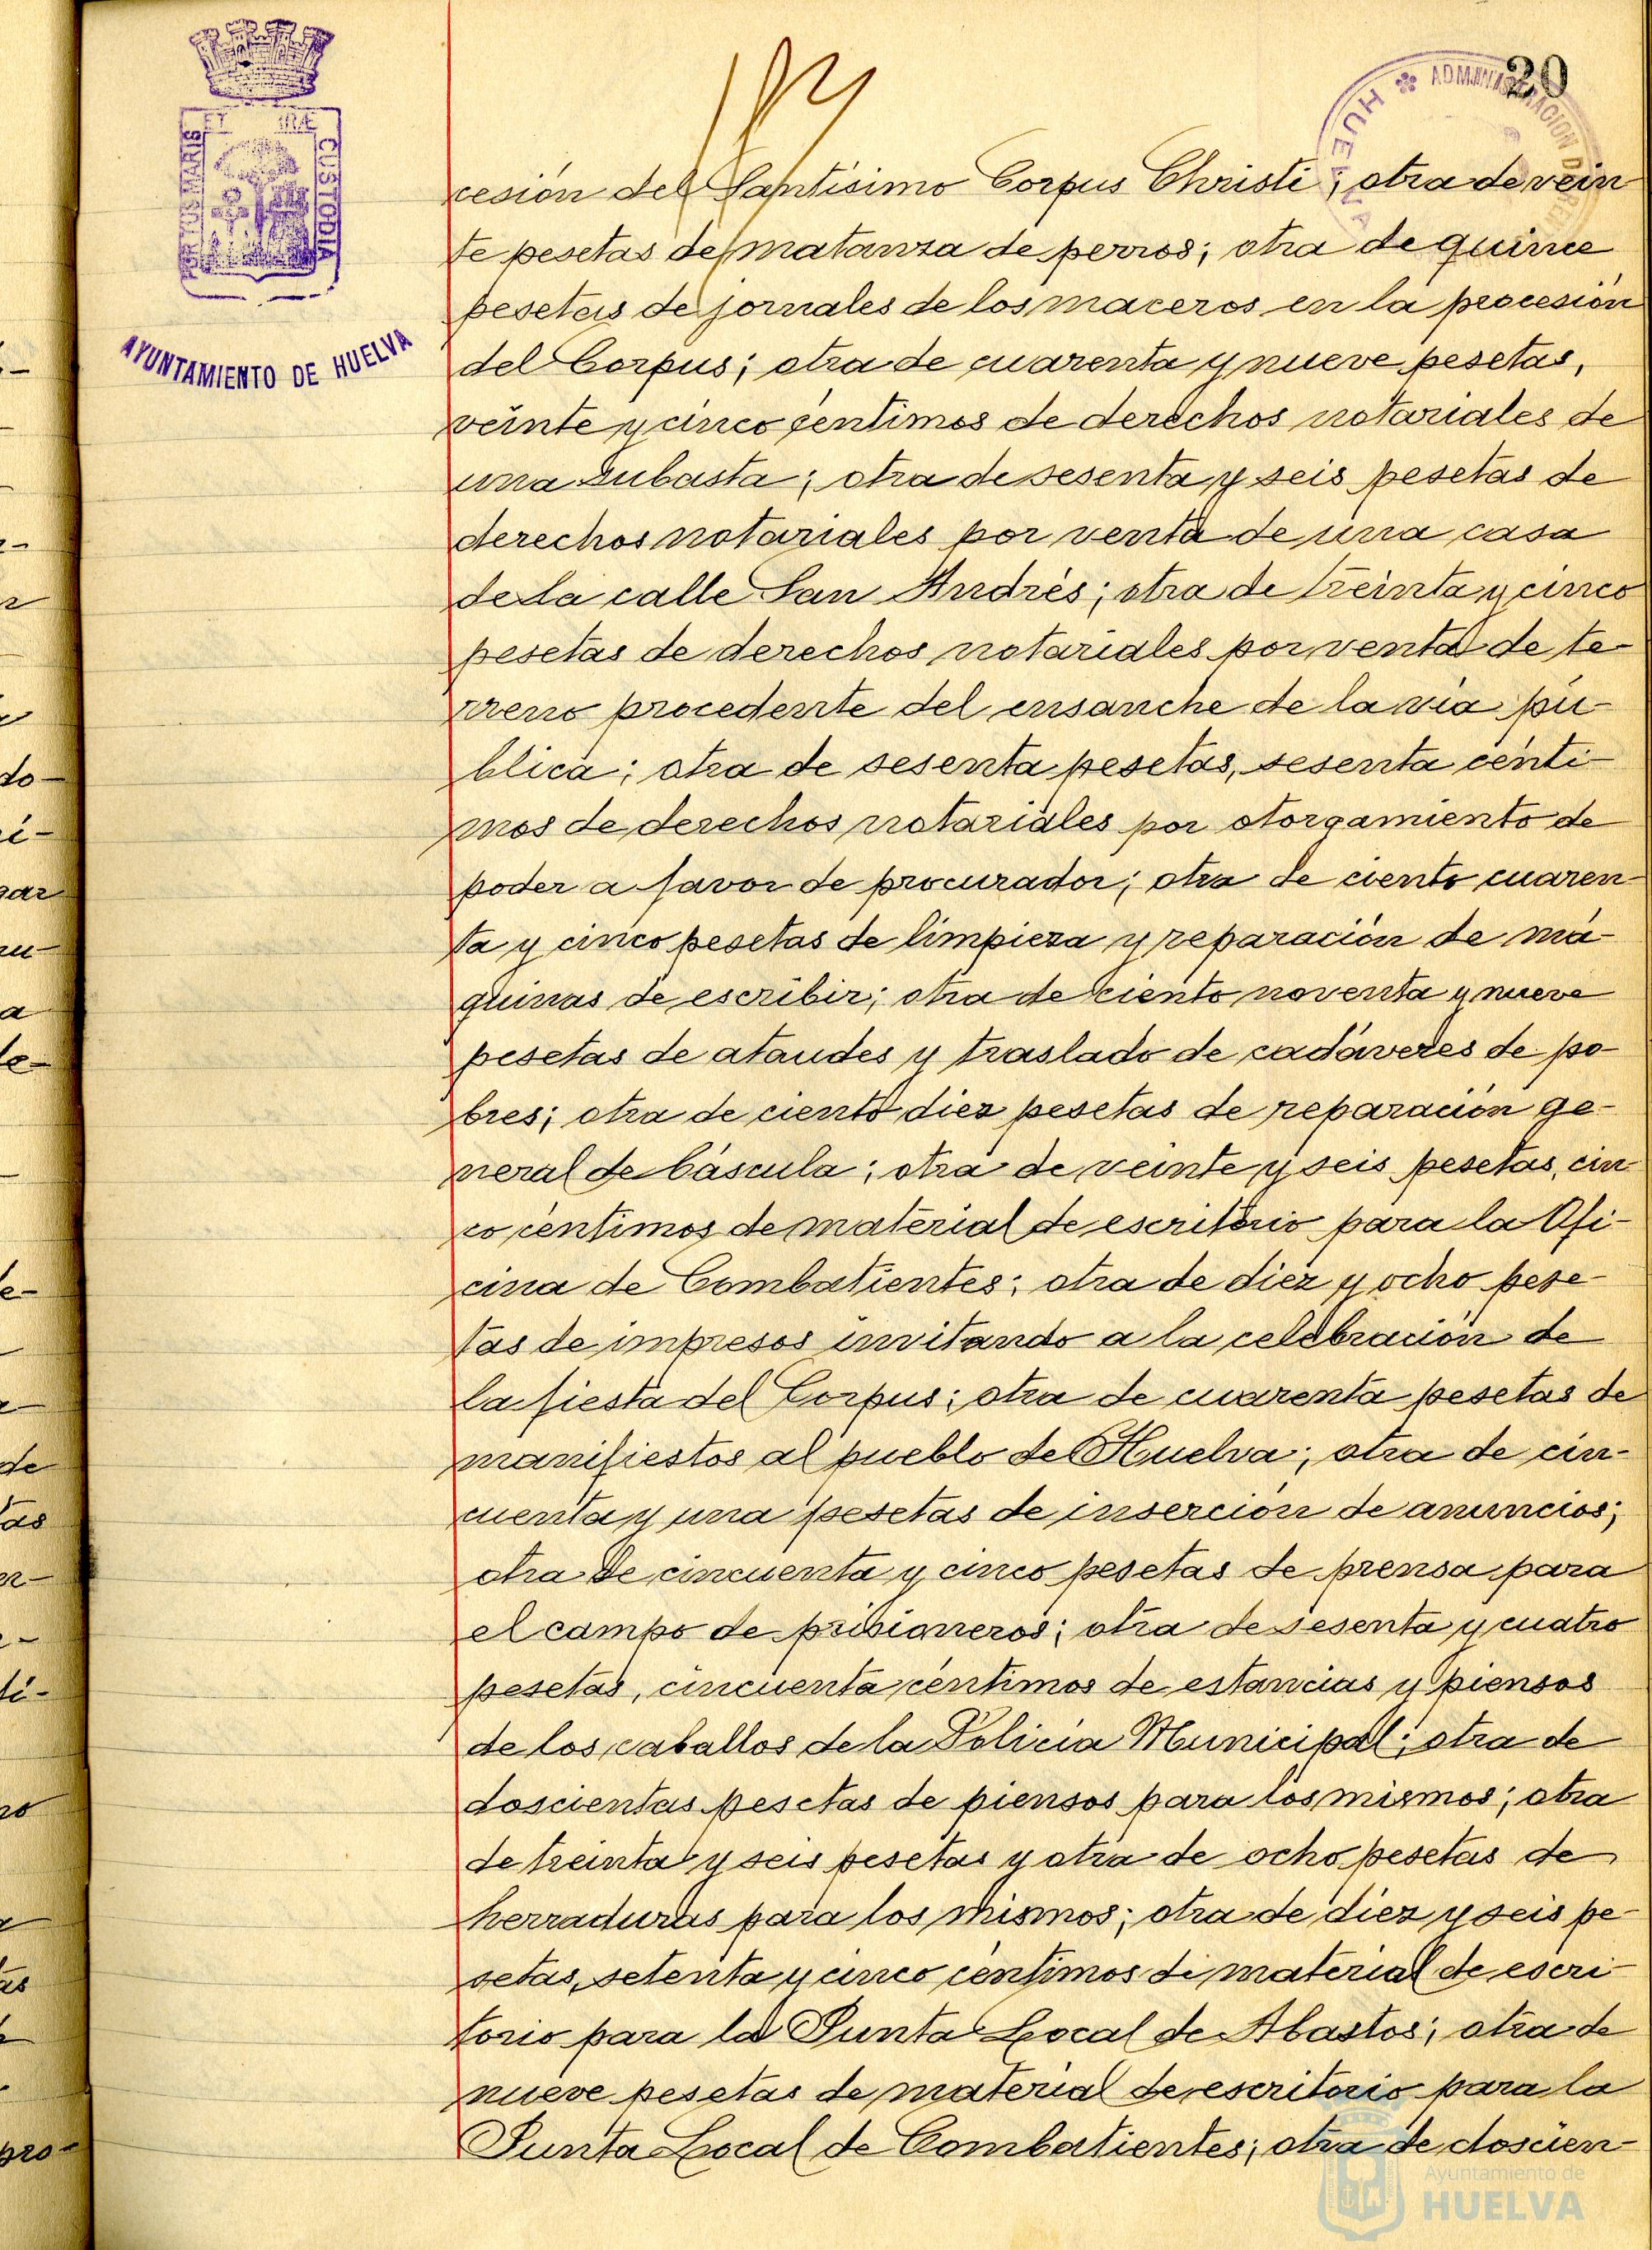 20
ADMINISTRACION DE RENTAS
HUELVA
PORTUS MARIS ET TERRÆ CUSTODIA
AYUNTAMIENTO DE HUELVA
cesión del Santísimo Corpus Christi; otra de vein
te pesetas de matanza de perros; otra de quince
pesetas de jornales de los maceros en la procesión
del Corpus; otra de cuarenta y nueve pesetas,
veinte y cinco céntimos de derechos notariales de
una subasta; otra de sesenta y seis pesetas de
derechos notariales por venta de una casa
de la calle San Andrés; otra de treinta y cinco
pesetas de derechos notariales por venta de te-
rreno procedente del ensanche de la vía pú-
blica; otra de sesenta pesetas, sesenta cénti-
mos de derechos notariales por otorgamiento de
poder a favor de procurador; otra de ciento cuaren-
ta y cinco pesetas de limpieza y reparación de má-
quinas de escribir; otra de ciento noventa y nueve
pesetas de ataudes y traslado de cadáveres de po-
bres; otra de ciento diez pesetas de reparación ge-
neral de báscula; otra de veinte y seis pesetas, cin
co céntimos de material de escritorio para la Ofi-
cina de Combatientes; otra de diez y ocho pese-
tas de impresos invitando a la celebración de
la fiesta del Corpus; otra de cuarenta pesetas de
manifiestos al pueblo de Huelva; otra de cin-
cuenta y una pesetas de inserción de anuncios;
otra de cincuenta y cinco pesetas de prensa para
el campo de prisioneros; otra de sesenta y cuatro
pesetas, cincuenta céntimos de estancias y piensos
de los caballos de la Policía Municipal; otra de
doscientas pesetas de piensos para los mismos; otra
de treinta y seis pesetas y otra de ocho pesetas de
herraduras para los mismos; otra de diez y seis pe-
setas, setenta y cinco céntimos de material de escri-
torio para la Junta Local de Abastos; otra de
nueve pesetas de material de escritorio para la
Junta Local de Combatientes; otra de doscien-
Ayuntamiento de
HUELVA